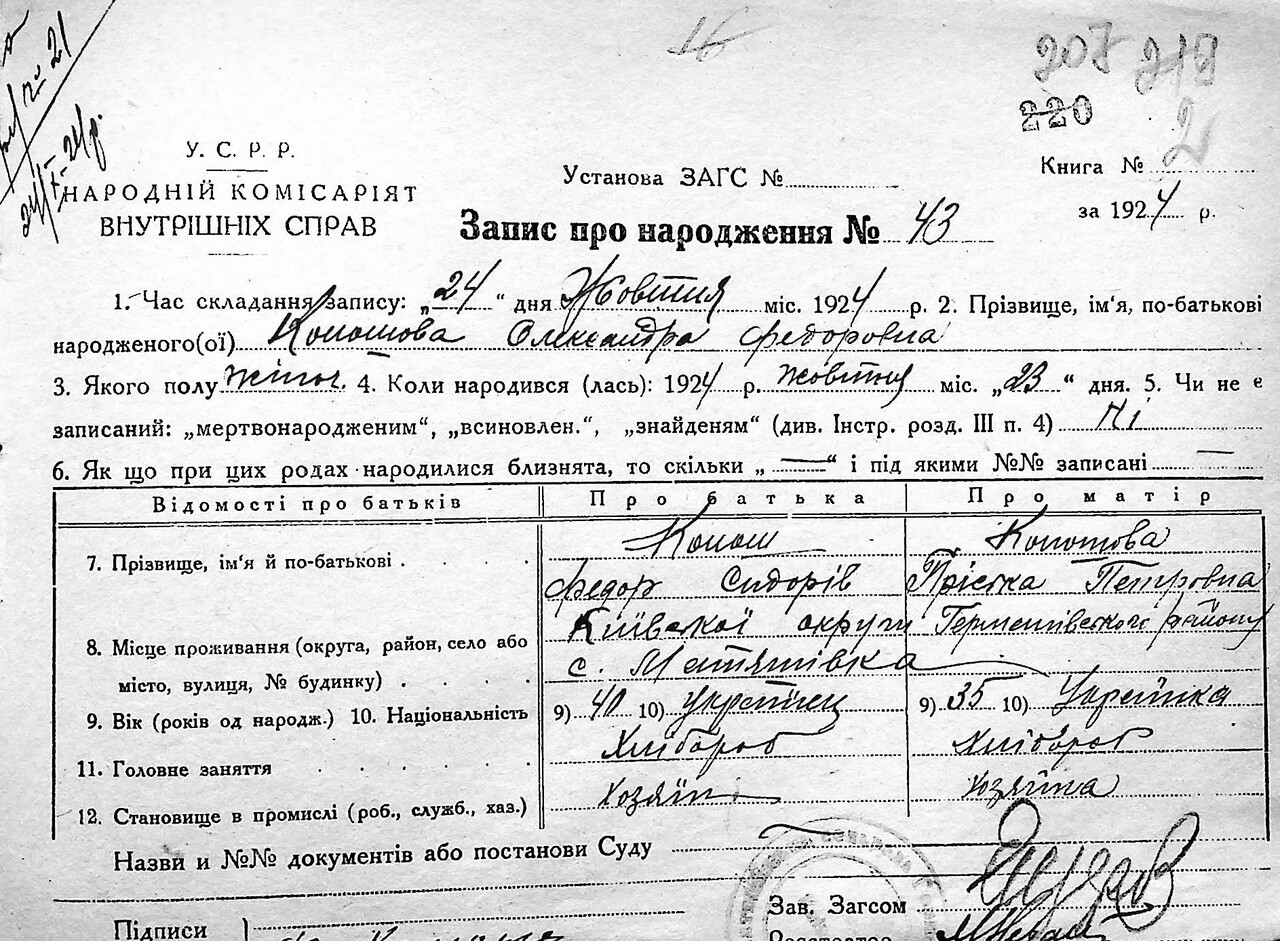 16
207 218
220
2
24/X-24 р.
У. С. Р. Р.
НАРОДНІЙ КОМІСАРІЯТ
ВНУТРІШНІХ СПРАВ
Установа ЗАГС №
Книга №
за 1924 р.
Запис про народження № 43
1. Час складання запису: „24" дня Жовтня міс. 1924 р. 2. Прізвище, ім'я, по-батькові
народженого(ої) Кополова Олександра Федоровна
3. Якого полу жіноч. 4. Коли народився (лась): 1924 р. жовтня міс. „23" дня. 5. Чи не є
записаний: „мертвонародженим", „всиновлен.", „знайденям" (див. Інстр. розд. III п. 4) Ні
6. Як що при цих родах народилися близнята, то скільки „—" і під якими №№ записані —
Відомості про батьків Про батька Про матір
7. Прізвище, ім'я й по-батькові
Федор Сидорів Петровна
8. Місце проживання (округа, район, село або
місто, вулиця, № будинку)
Київської округи Германівського району
с. Матяшівка
9. Вік (років од народж.) 10. Національність 9) 40 10) українец 9) 35 10) Українка
11. Головне заняття Хлібороб Хлібороб
12. Становище в промислі (роб., служб., хаз.) хозяїн хозяйка
Назви и №№ документів або постанови Суду
Зав. Загсом
Підписи
Реєстратор